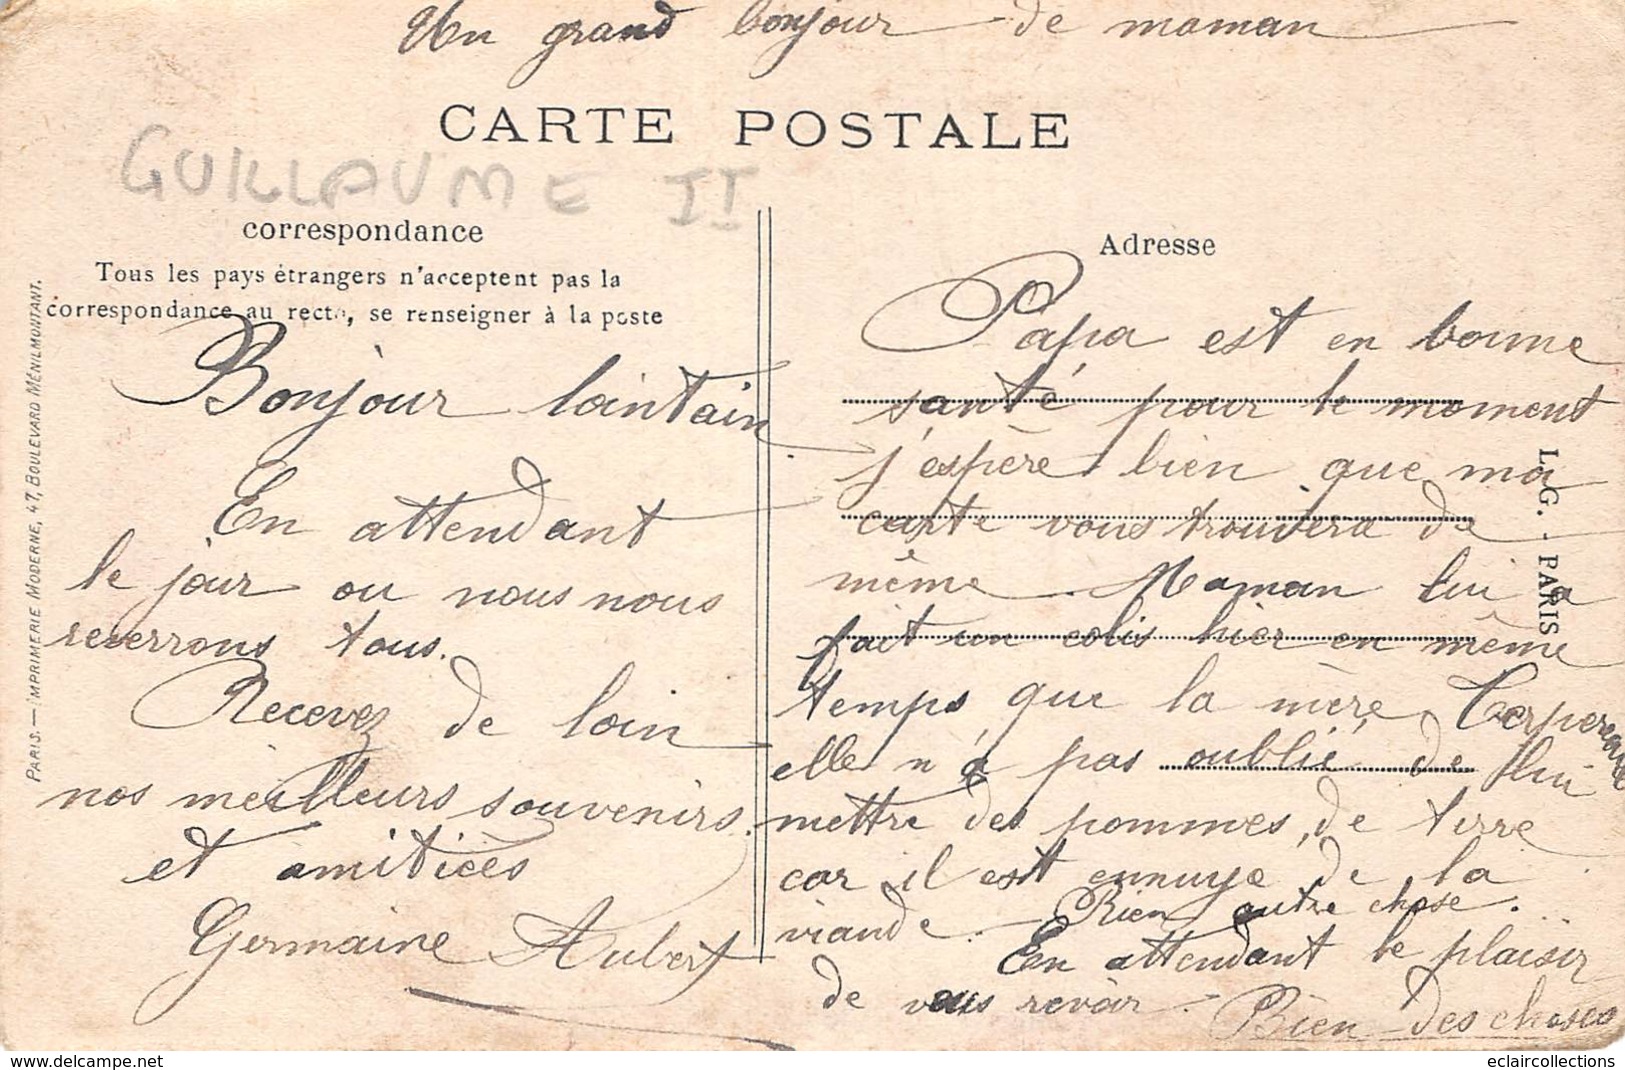 Un grand bonjour de maman
CARTE POSTALE
GUILLAUME II
correspondance
Tous les pays étrangers n'acceptent pas la
correspondance au recto, se renseigner à la poste
PARIS.— IMPRIMERIE MODERNE, 47, BOULEVARD MÉNILMONTANT.
Bonjour lointain
En attendant
le jour ou nous nous
reverrons tous.
Recevez de loin
nos meilleurs souvenirs.
et amitiées
Germaine Aubert
Adresse
Papa est en bonne
santé pour le moment
j'espère bien que ma
carte vous trouvera de
même. Maman lui a
fait un colis hier en même
temps que la mère
elle n'a pas oublié de lui
mettre des pommes de terre
car il est ennuyé de la
viande. Rien autre chose.
En attendant le plaisir
de vous revoir - Bien des choses
L. G. - PARIS
eclaircollections